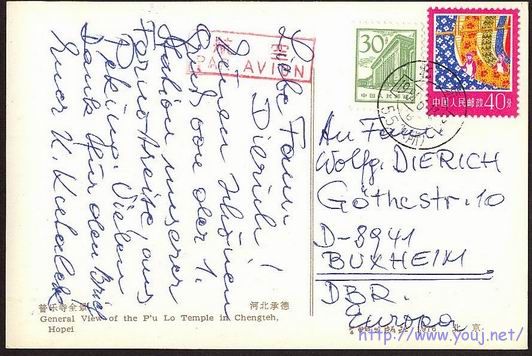 Liebe Fam.
Dierich!
Einen schönen
Gruß von der 1.
Station unserer
Fernostreise, aus
Peking. Vielen
Dank für den Brief
Euer K.
PAR AVION
30
中国人民邮政
中国人民邮政 40分
An Fam.
Wolfg. DIERICH
Göthestr. 10
D-8941
BUXHEIM
DBR.
Europa
普乐寺全景 河北承德
General View of the P'u Lo Temple in Chengteh,
Hopei
北京
http://www.youj.net/